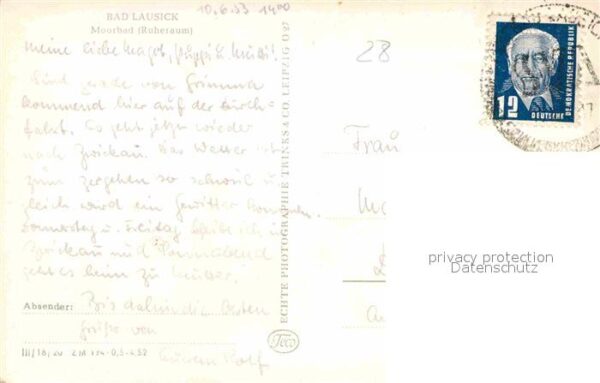 BAD LAUSICK
Moorbad (Ruheraum)
10.6.53 1400
Meine liebe
Sind gerade von Grimma
kommend hier auf der Durch-
fahrt. Es geht jetzt wieder
nach Zwickau. Das Wetter ist
zum zergehen so schwül u.
gleich wird ein Gewitter kommen.
Donnerstag u. Freitag bleibe ich in
Zwickau und Sonnabend
geht es heim zu Mutter.
Absender: Bis dahin die besten
Grüße von
Rolf
III/18/
ECHTE PHOTOGRAPHIE TRINKS & CO. LEIPZIG O 27
Teco
28
Frau
12
DEUTSCHE
DEMOKRATISCHE REPUBLIK
privacy protection
Datenschutz